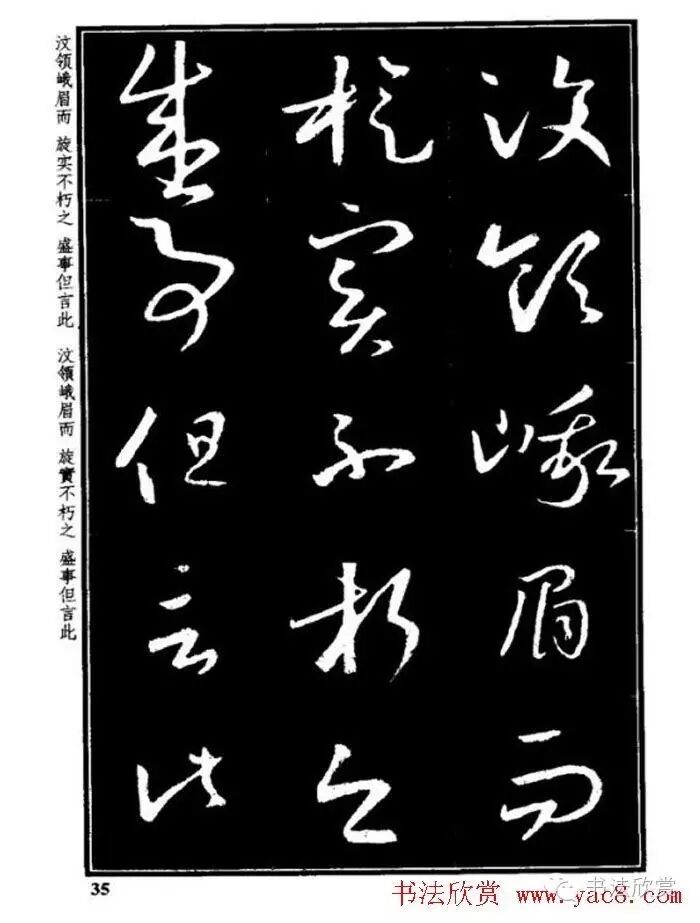 汶领峨眉而
旋实不朽之
盛事但言此
汶领峨眉而 旋实不朽之 盛事但言此 汶領峨眉而 旋實不朽之 盛事但言此
35
书法欣赏 www.yac8.com
书法欣赏